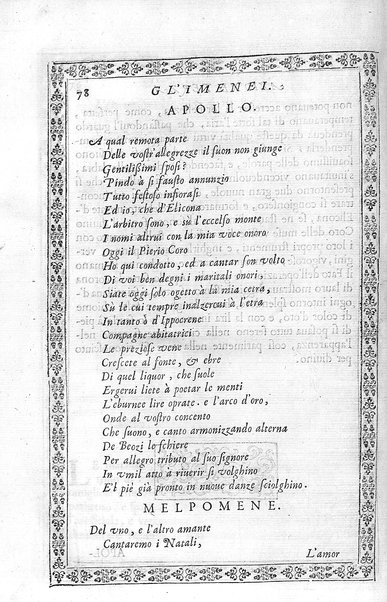 78
GL'IMENEI.
APOLLO.
A qual remota parte
Delle vostr'allegrezze il suon non giunge
Gentilissimi sposi?
Pindo à sì fausto annunzio
Tutto festoso infiorasi
Ed io, che d'Elicona
L'arbitro sono, e sù l'eccelso monte
I nomi altrui con la mia voce onoro
Oggi il Pierio Coro
Ho quì condotto, ed a cantar son volto
Di voi ben degni i maritali onori,
Siate oggi solo ogetto à la mia cetra,
Sù le cui tempre inalzerui à l'etra
In tanto ò d'Ippocrene
Compagne abitatrici
Le preziose vene
Crescete al fonte, & ebre
Di quel liquor, che suole
Ergerui liete à poetar le menti
L'eburnee lire oprate. e l'arco d'oro,
Onde al vostro concento
Che suono, e canto armonizzando alterna
De Beozi le schiere
Per allegro tributo al suo signore
In umil atto à riuerir si volghino
E'l piè già pronto in nuoue danze sciolghino.
MELPOMENE.
Del vno, e l'altro amante
Cantaremo i Natali,
L'amor